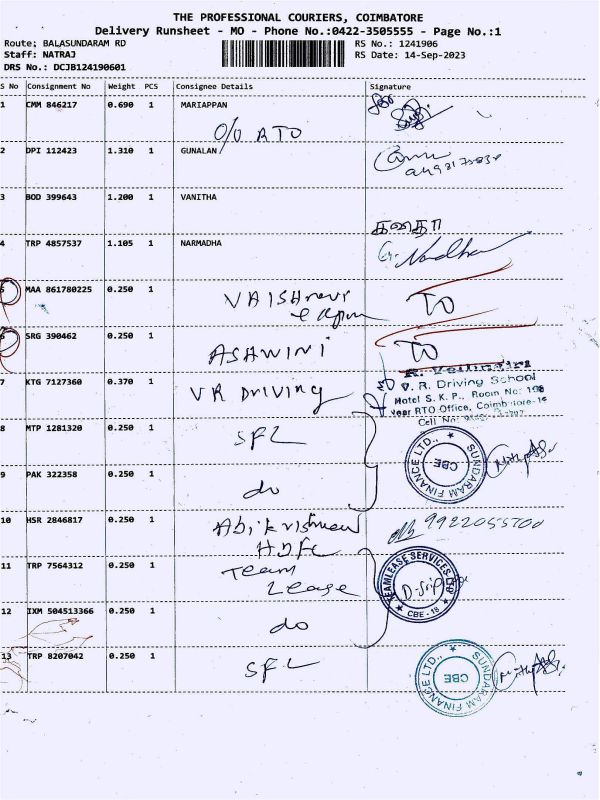 THE PROFESSIONAL COURIERS, COIMBATORE
Delivery Runsheet - MO - Phone No.:0422-3505555 - Page No.:1
Route: BALASUNDARAM RD
Staff: NATRAJ
DRS No.: DCJB124190601
RS No.: 1241906
RS Date: 14-Sep-2023
S No Consignment No Weight PCS Consignee Details Signature
1 CMM 846217 0.690 1 MARIAPPAN
O/U RTO
2 DPI 112423 1.310 1 GUNALAN
3 BOD 399643 1.200 1 VANITHA
4 TRP 4857537 1.105 1 NARMADHA
5 MAA 861780225 0.250 1 VAISHnavi TO
6 SRG 390462 0.250 1 ASHWINI TO
7 KTG 7127360 0.370 1 VR DRIVING
V. R. Driving School
Motel S. K. P., Room No: 108
Near RTO Office, Coimbatore-18
Cell No:
8 MTP 1281320 0.250 1 SFL
SUNDARAM FINANCE LTD., CBE
9 PAK 322358 0.250 1 do
10 HSR 2846817 0.250 1 Abikrishnan 9922055700
HDFC
11 TRP 7564312 0.250 1 Team
Lease
TEAMLEASE SERVICES LTD CBE-18
12 IXM 504513366 0.250 1 do
13 TRP 8207042 0.250 1 SFL
SUNDARAM FINANCE LTD., CBE